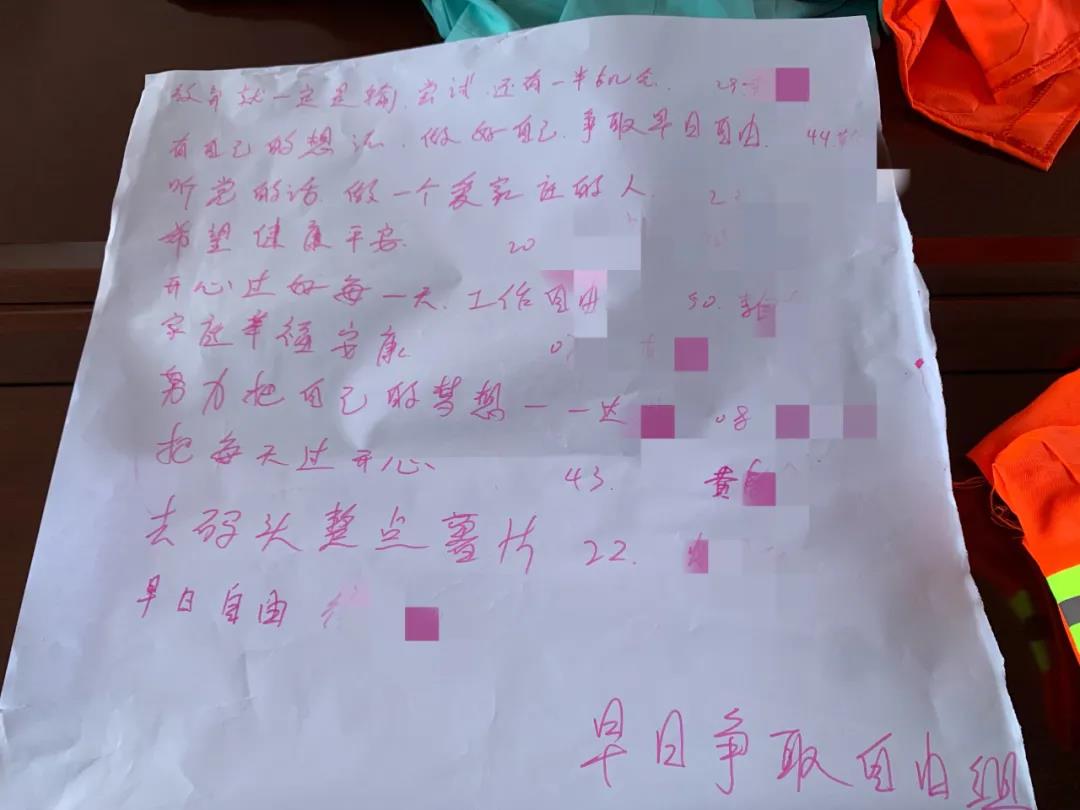 放弃就一定是输,尝试.还有一半机会.
有自己的想法.做好自己.争取早日自由. 44.黄
听党的话.做一个爱家庭的人. 22
希望健康平安. 20
开心过好每一天.工作自由 50.
家庭幸福安康 07
努力把自己的梦想一一达 08
把每天过开心 43. 黄
去码头整点薯片 22.
早日自由
早日争取自由组